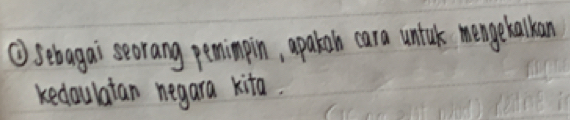 ① Sebagai seorang pemimpin, apakah cara untuk mengekalkan
kedaulatan negara kita.